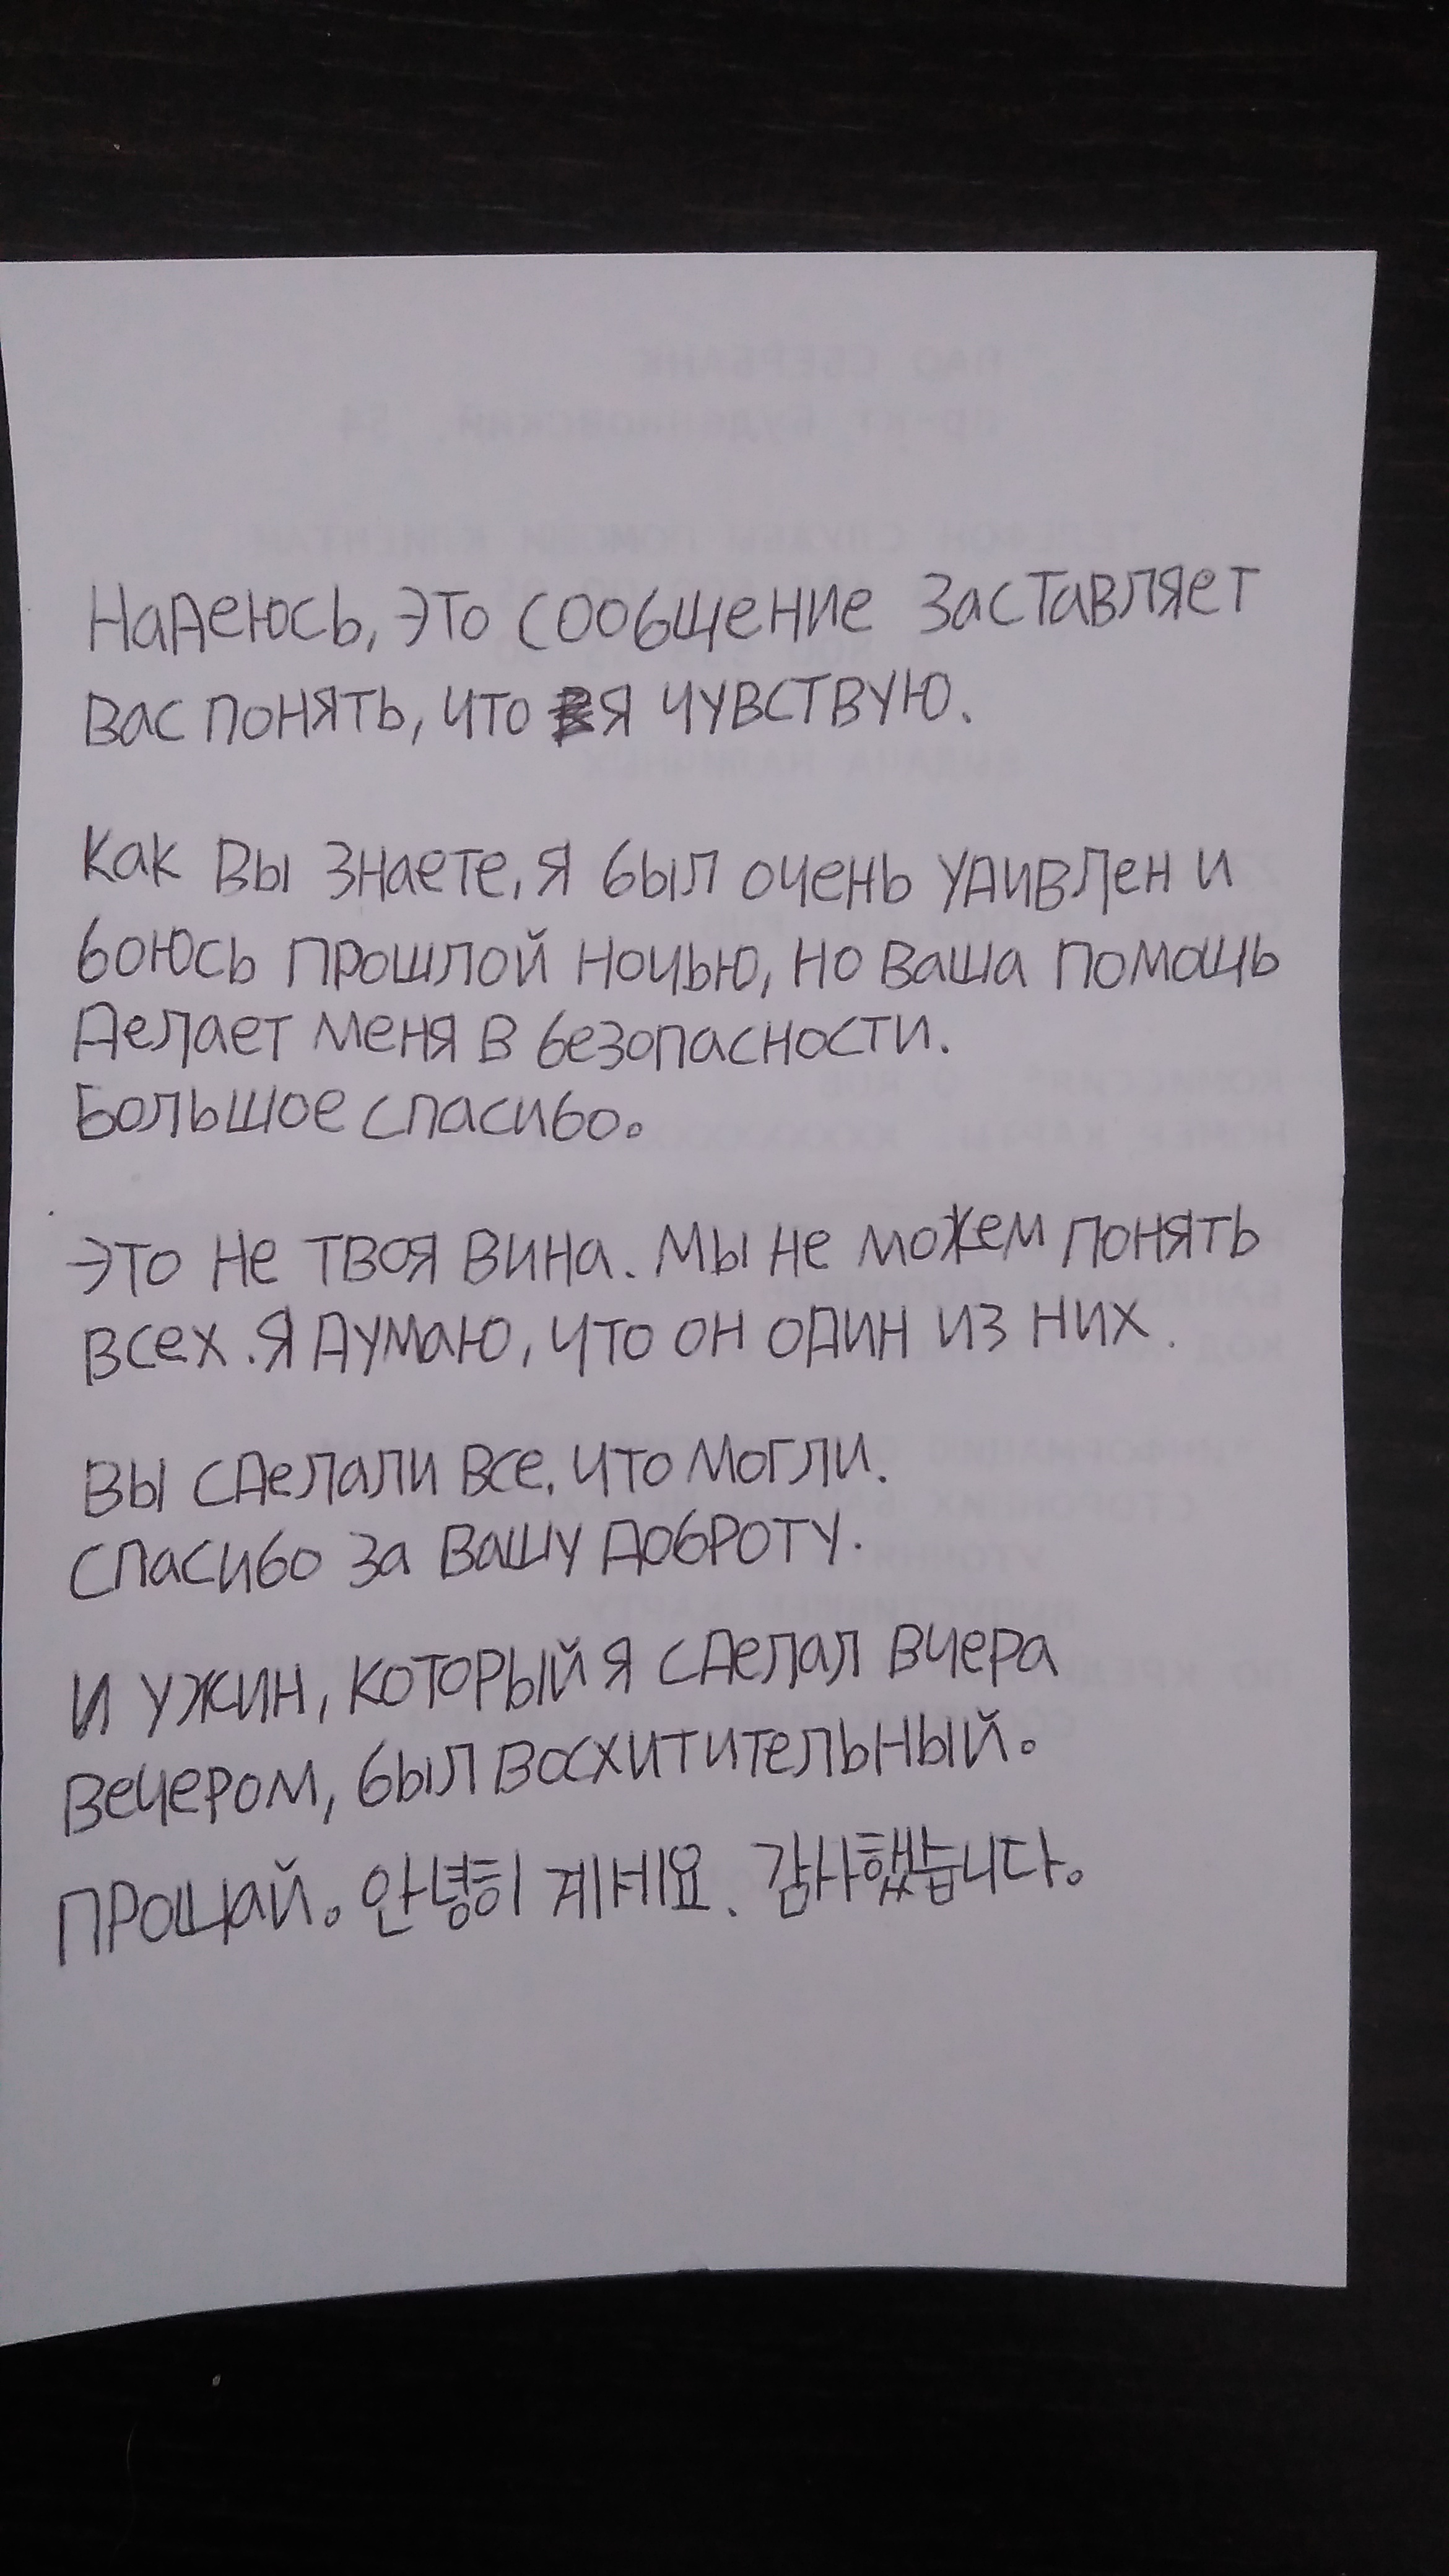 Надеюсь, это сообщение заставляет
вас понять, что я чувствую.
Как вы знаете, я был очень удивлен и
боюсь прошлой ночью, но ваша помощь
делает меня в безопасности.
Большое спасибо.
Это не твоя вина. Мы не можем понять
всех. Я думаю, что он один из них.
Вы сделали все, что могли.
Спасибо за вашу доброту.
И ужин, который я сделал вчера
вечером, был восхитительный.
Прощай. 안녕히 계세요. 감사했습니다.